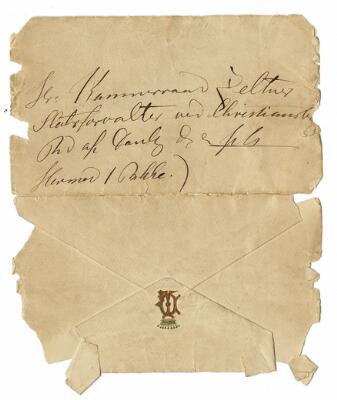 Hr. Kammerraad Zeltner
Slotsforvalter ved Christiansb
Rd af
Hermed 1 Pakke.)